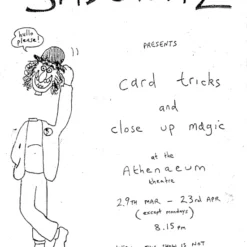 hello please!
PRESENTS
card tricks
and
close up magic
at the
Athenaeum
theatre
29TH MAR - 23rd APR
(except mondays)
8.15 pm
IS NOT